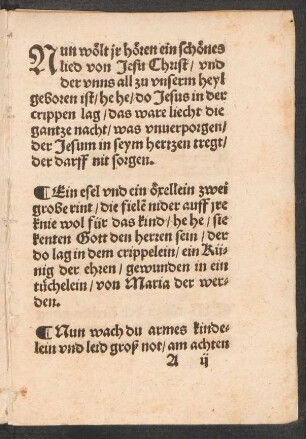 Nun wölt jr hören ein schönes
lied von Jesu Christ / vnd
der vnns all zu vnserm heyl
geboren ist / he he / do Jesus in der
crippen lag / das ware liecht die
gantze nacht / was vnuerporgen /
der Jesum in seym hertzen tregt /
der darff nit sorgen.
¶ Ein esel vnd ein öxellein zwei
grosse rint / die fielē nider auff jre
knie wol für das kind / he he / sie
kenten Gott den herren sein / der
do lag in dem crippelein / ein Kü-
nig der ehren / gewunden in ein
tüchelein / von Maria der wer-
den.
¶ Nun wach du armes kinde-
lein vnd leid groß not / am achten
A ij